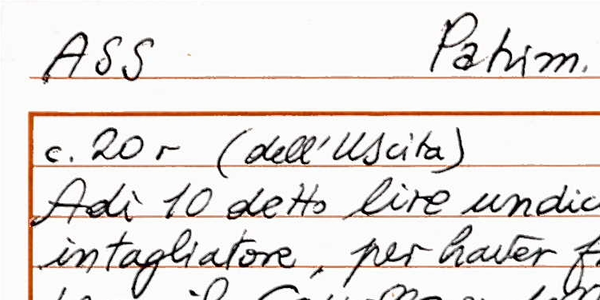 ASS Patrim.
c. 20 r (dell'Uscita)
Adì 10 detto lire undic
intagliatore, per haver f